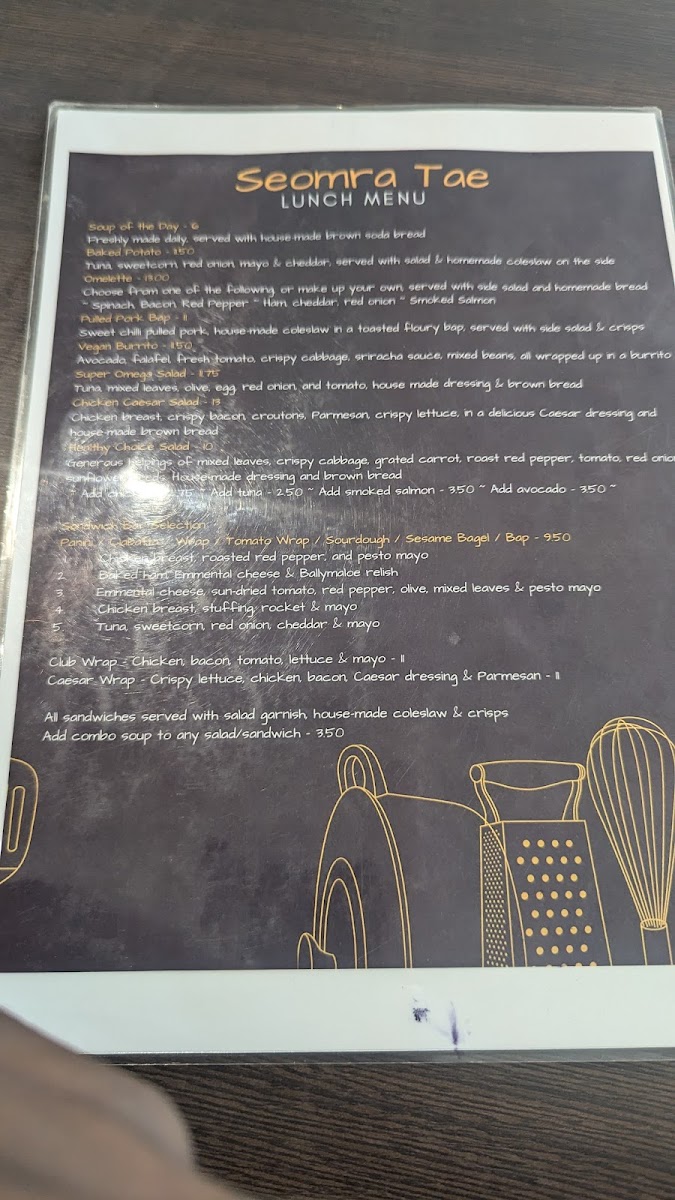 Seomra Tae
LUNCH MENU
Soup of the Day - 6
Freshly made daily, served with house-made brown soda bread
Baked Potato - 11.50
Tuna, sweetcorn, red onion, mayo & cheddar, served with salad & homemade coleslaw on the side
Omelette - 13.00
Choose from one of the following or make up your own, served with side salad and homemade bread
~ Spinach, Bacon, Red Pepper ~ Ham, cheddar, red onion ~ Smoked Salmon
Pulled Pork Bap - 11
Sweet chilli pulled pork, house-made coleslaw in a toasted floury bap, served with side salad & crisps
Vegan Burrito - 11.50
Avocado, falafel, fresh tomato, crispy cabbage, sriracha sauce, mixed beans, all wrapped up in a burrito
Super Omega Salad - 11.75
Tuna, mixed leaves, olive, egg, red onion, and tomato, house made dressing & brown bread
Chicken Caesar Salad - 13
Chicken breast, crispy bacon, croutons, Parmesan, crispy lettuce, in a delicious Caesar dressing and
house-made brown bread
Healthy Choice Salad - 10
Generous helpings of mixed leaves, crispy cabbage, grated carrot, roast red pepper, tomato, red onion
House-made dressing and brown bread
~ Add Add tuna - 2.50 ~ Add smoked salmon - 3.50 ~ Add avocado - 3.50 ~
Sandwich Bar Selection:
Panini / Wrap / Tomato Wrap / Sourdough / Sesame Bagel / Bap - 9.50
1. Chicken breast, roasted red pepper, and pesto mayo
2. Baked Ham, Emmental cheese & Ballymaloe relish
3. Emmental cheese, sun-dried tomato, red pepper, olive, mixed leaves & pesto mayo
4. Chicken breast, stuffing, rocket & mayo
5. Tuna, sweetcorn, red onion, cheddar & mayo
Club Wrap - Chicken, bacon, tomato, lettuce & mayo - 11
Caesar Wrap - Crispy lettuce, chicken, bacon, Caesar dressing & Parmesan - 11
All sandwiches served with salad garnish, house-made coleslaw & crisps
Add combo soup to any salad/sandwich - 3.50